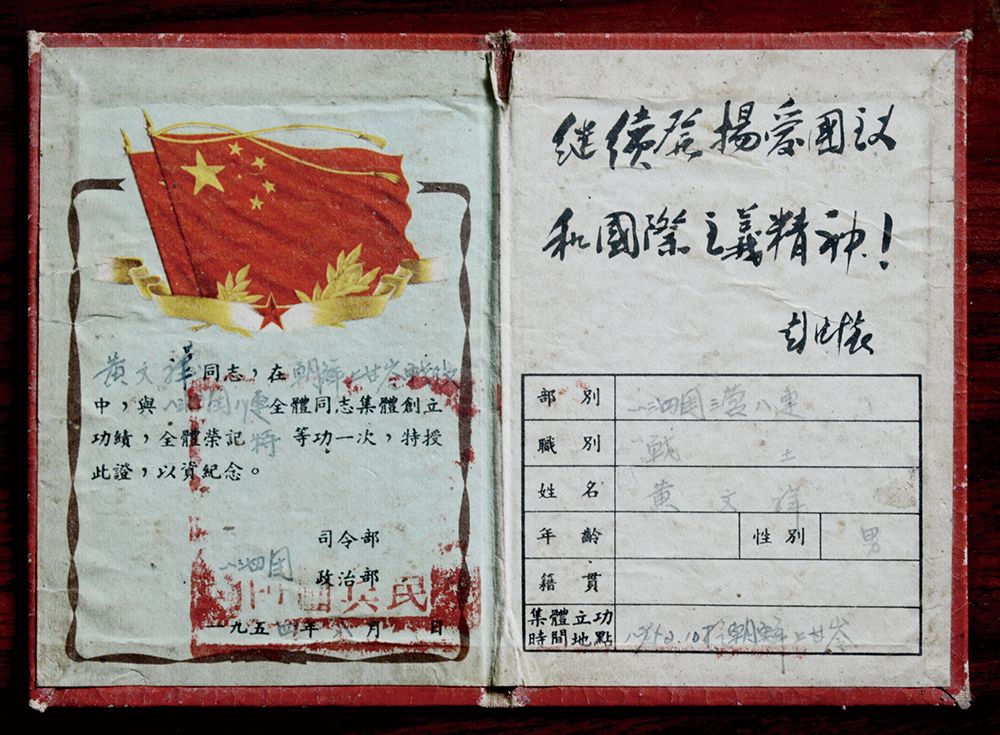 黄文祥同志，在朝鲜上甘岭战役
中，與一三四团八連全體同志集體創立
功績，全體榮記特等功一次，特授
此證，以資紀念。
司令部
一三四团
政治部
一九五四年六月 日
继續發揚爱國主义
和國際主義精神！
彭德怀
部别 一三四团三营八連
職别 戰士
姓名 黄文祥
年齡 性别 男
籍貫
集體立功
時間地點 朝鲜上甘岭